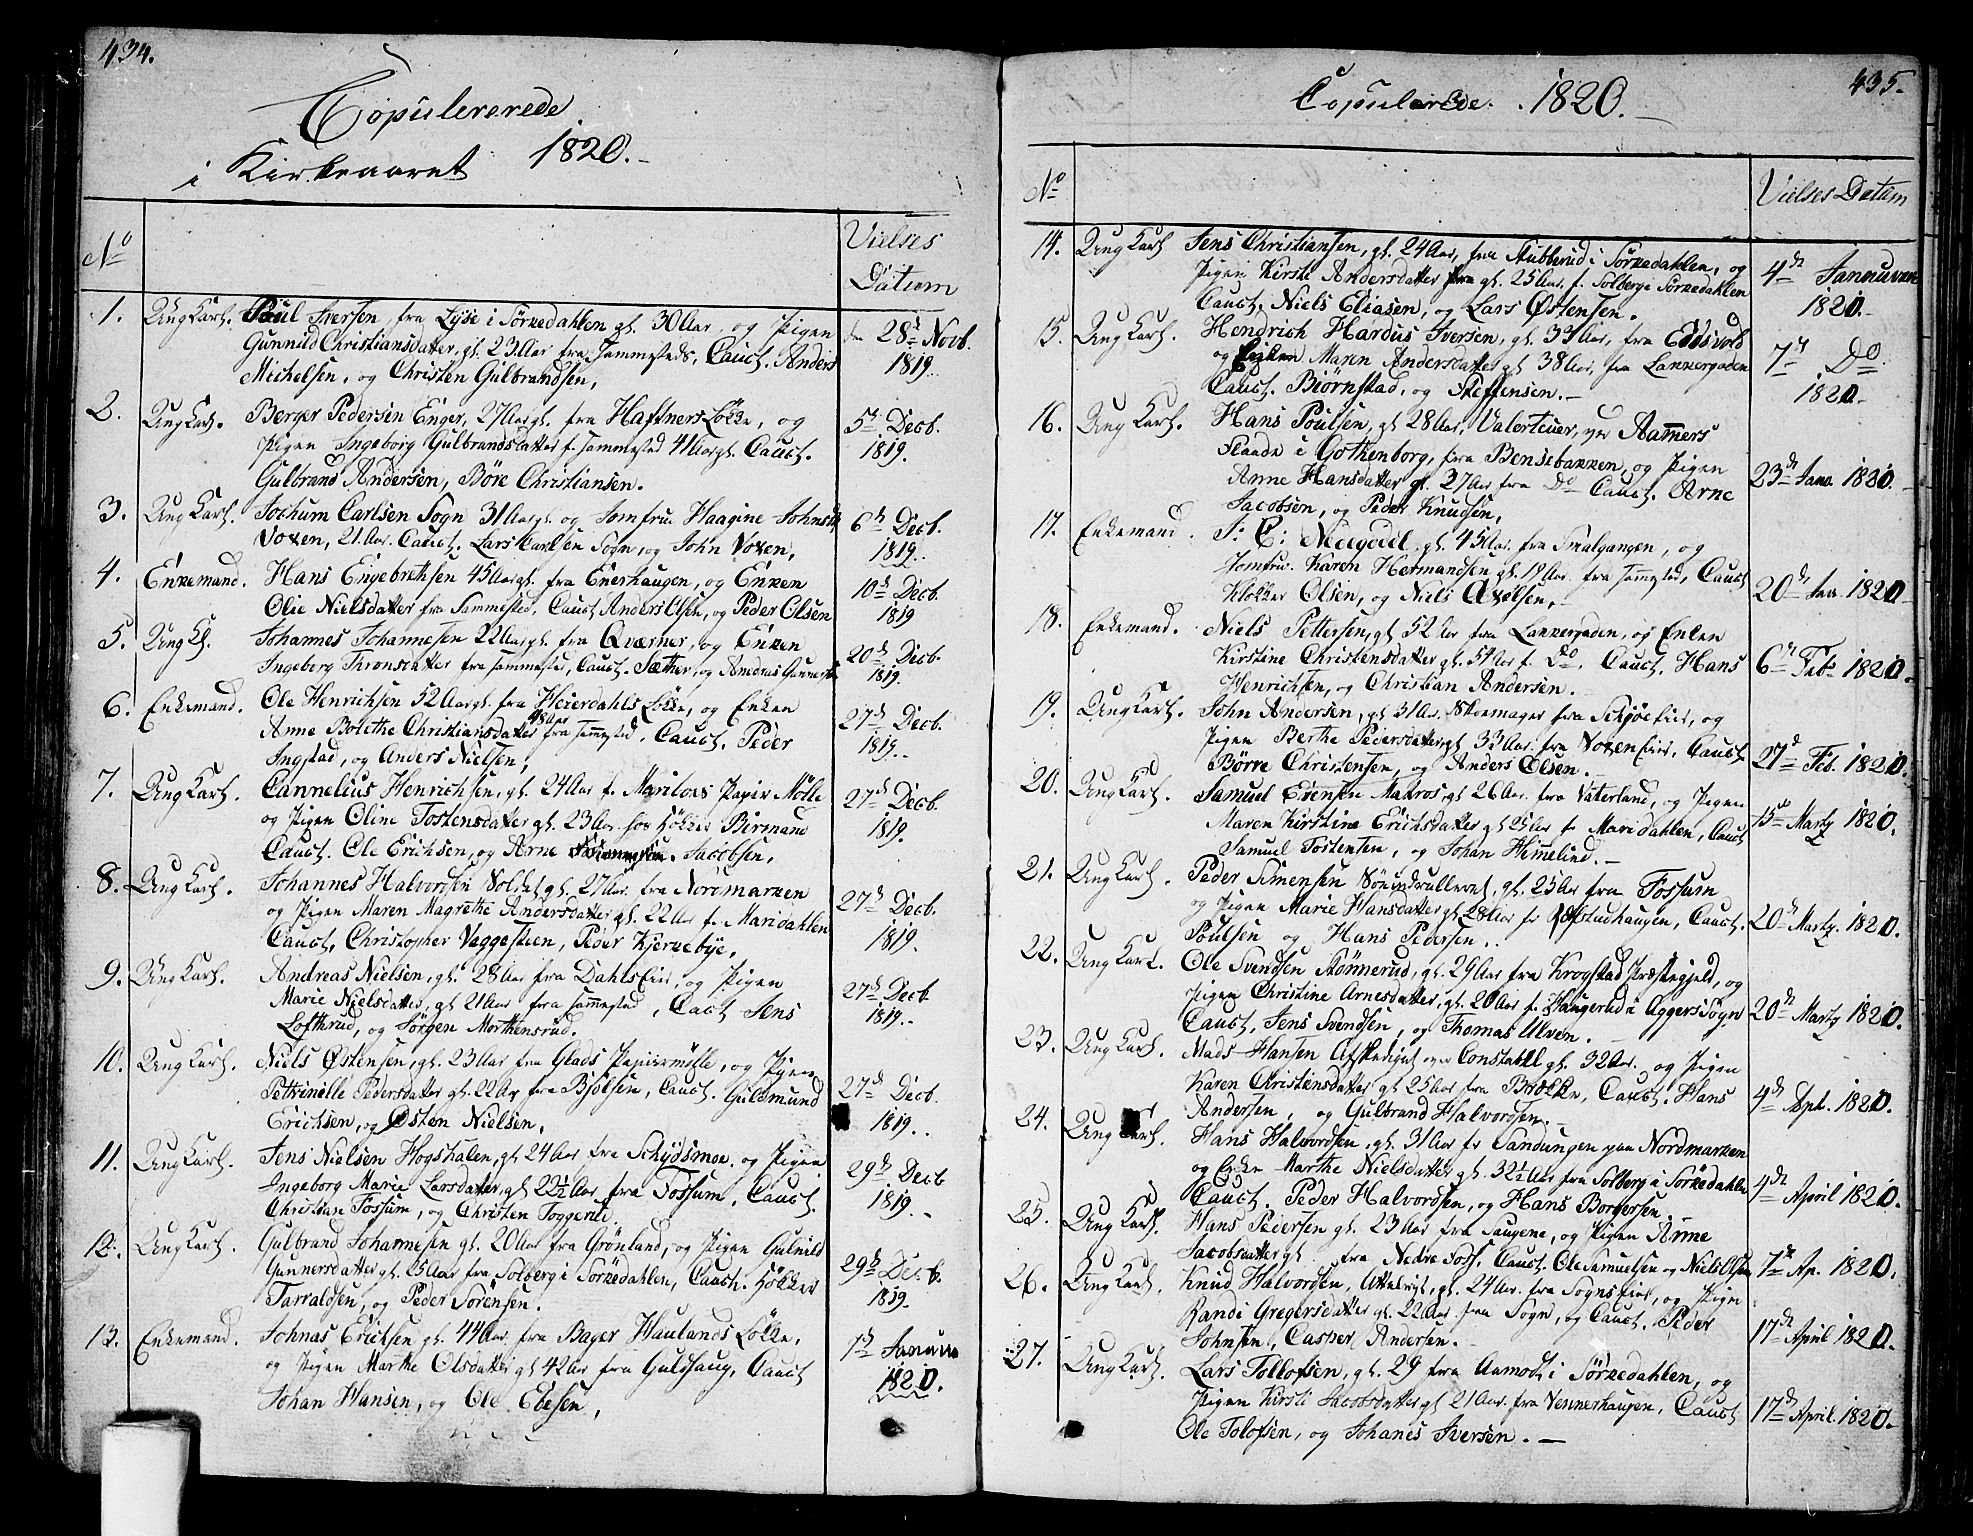 434.
Copulererede
i Kirkeaaret 1820.
No
Vielses
Datum
1. Ung Karl. Poul Iversen, fra Lyse i Sörkedahlen gl. 30 Aar, og Pigen
Gunnild Christiansdatter, gl. 23 Aar fra Sammesteds, Cauct. Anders
Michelsen, og Christen Gulbrandsen,
28de Novb.
1819.
2. Ung Karl. Berger Pedersen Enger, 27 Aar gl. fra Hafners Lökke, og
Pigen Ingeborg Gulbrandsdatter f. Sammested 41 Aar gl. Cauct.
Gulbrand Andersen, Böre Christiansen.
5te Decb.
1819.
3. Ung Karl. Jochum Carlsen Sogn 31 Aar gl. og Jomfru Haagine Johnsd.
Voxen, 21 Aar. Cauct. Lars Carlsen Sogn, og John Voxen,
6te Decb.
1819.
4. Enkemand. Hans Engebrethsen 45 Aar gl. fra Enerhaugen, og Enken
Olie Nielsdatter fra Sammested, Cauct. Anders Olsen, og Peder Olsen
10de Decb.
1819
5. Ung K. Johannes Johannesen 22 Aar gl. fra Qværner, og Enken
Ingeborg Thronsdatter fra Sammested, Cauct. Sæther, og
20de Decb.
1819.
6. Enkemand. Ole Henrichsen 52 Aar gl. fra Heierdahls Lökke, og Enken
Anne Bolethe Christiansdatter 48 Aar fra Sammested, Cauct. Peder
Ingstad, og Anders Nielsen,
27de Decb.
1819.
7. Ung Karl. Cannelius Henrichsen, gl. 24 Aar f. Papir Mölle
og Pigen Oline Tostensdatter gl. 23 Aar hos Birmand
Cauct. Ole Erichsen, og Arne Jacobsen,
27de Decb.
1819.
8. Ung Karl. Johannes Halvordsen gl. 27 Aar. fra Nordmarken
og Pigen Maren Magrethe Andersdatter gl. 22 Aar f. Maridahlen
Cauct. Christopher Vaggesteen, Peder Kjerkebye,
27de Decb.
1819.
9. Ung Karl. Andreas Nielsen, gl. 28 Aar fra Dahls Eie, og Pigen
Marie Nielsdatter, gl. 21 Aar fra Sammested, Cact Jens
Lofthrud, og Jörgen Morthensrud.
27de Decb.
1819.
10. Ung Karl. Niels Östensen, gl. 23 Aar fra Glads Papiermölle, og Pigen
Pettrinelle Pedersdatter gl. 22 Ar fra Bjölsen, Cauct. Guldmund
Erichsen, og Østen Nielsen,
27de Decb.
1819.
11. Ung Karl. Jens Nielsen Hogshalen, gl. 24 Aar fra Schydsmoe, og Pigen
Ingeborg Marie Larsdatter, gl. 22½ Aar, fra Fossum, Cauct.
Christian Fossum, og Christen Toggerud.
29de Decb
1819.
12. Ung Karl. Gulbrand Johannesen gl. 20 Aar fra Grönland, og Pigen Gulnild
Gunnersdatter gl. 25 Aar fra Solberg i Sörkedahlen, Cauct.
Tarraldsen, og Peder Sörensen.
29de Decb.
1819.
13. Enkemand. Johnas Erichsen gl. 44 Aar fra Bager Haulands Lökke,
og Pigen Marthe Olsdatter gl. 42 Aar fra Guldhaug, Cauct
Johan Hansen, og Ole Ebesen,
1te
1820.
435.
Copulerede. 1820.
No
Vielses Datum
14. Ung Karl Jens Christiansen, gl. 24 Aar, fra Stubberud i Sörkedahlen, og
Pigen Kirsti Andersdatter gl. 25 Aar f. Solberg i Sörkedahlen
Cauct, Niels Eliasen, og Lars Østensen.
4de Januar
1820.
15. Ung Karl. Hendrich Hardus Iversen, gl. 34 Aar, fra Edsvold
og Maren Andersdatter gl. 38 Aar, fra Lakkergaden
Cauct. Biörnstad, og Steffensen.
7de Do.
1820.
16. Ung Karl. Hans Poulsen, gl 28 Aar, ved
i Gothenborg, fra Bensebakken, og Pigen
Anne Hansdatter gl. 27 Aar fra Do Cauct. Arne
Jacobsen, og Peder Knudsen,
23de Janr. 1820.
17. Enkemand. J: C: gl. 45 Aar. fra Smalgangen, og
Jomfru. Karen Hermandsen gl. 19 Aar. fra Sammested, Cauct
Klokker Olsen, og Niels Axelsen,
20de Jan. 1820
18. Enkemand. Niels Pettersen, gl 52 Aar fra Lakkergaden, og Enken
Kirstine Christensdatter gl. 54 Aar f. Do, Cauct. Hans
Henrichsen, og Christian Andersen.
6te Feb 1820.
19. Ung Karl. John Andersen, gl 31 Ar. Skoemager fra, og
Pigen Berthe Pedersdatter gl. 33 Aar. fra Voxen Eie, Cauct.
Börre Christensen, og Anders Olsen.
27d Feb. 1820.
20. Ung Karl. Samuel Evensen Matros, gl 26 Aar. fra Vaterland, og Pigen
Maren Kirstine Erichsdatter gl 25 Aar fr Maridahlen, Cauct
Samuel Tostensen, og Johan Himmelind.
15de Martz 1820.
21. Ung Karl. Peder Simensen gl. 25 Aar fra Fossum
og Pigen Marie Hansdatter gl. 28 Aar fr, Cauct.
Poulsen og Hans Pedersen.
20de Martz. 1820.
22. Ung Karl. Ole Svendsen Stönnerud, gl. 29 Aar fra Krogstad Præstegjeld, og
Pigen Christine Arnesdatter, gl. 20 Aar f. Haugerud i Aggers Sogn
Cauct. Jens Svendsen, og Thomas Ulven.
20de Martz 1820.
23. Ung Karl. Mads Hansen Afskediget Constabel gl. 32 Aar. og Pigen
Karen Christensdatter gl. 25 Aar fra Brække, Cauct. Hans
Andersen, og Gulbrand Halvordsen.
4de Apl. 1820.
24. Ung Karl. Hans Halvordsen, gl. 31 Aar fr Sandungen paa Nordmarken
og Enke Marthe Nielsdatter gl. 32½ Aar fra Solberg i Sörkedahlen
Cauct. Peder Halvordsen, og Hans Borgersen.
4de April 1820.
25. Ung Karl. Hans Pedersen gl. 23 Aar fra Saugene, og Pigen Anne
Jacobsdatter gl fra Nedre Foss, Cauct. Ole Samuelsen og Niels Olsen
7de Ap. 1820.
26. Ung Karl. Knud Halvordsen, gl. 24 Aar. fra Sogns Eie, og Pigen
Randi Gregersdatter gl. 22 Aar. fra Sogn, og Cauct. Peder
Johnsen, Casper Andersen.
17de April 1820.
27. Ung Karl. Lars Tollofsen, gl. 29 fra Aamodt i Sörkedahlen, og
Pigen Kirsti Jacobsdatter gl 21 Aar. fra Vennerhaugen, Cauct
Ole Tolofsen, og Johanes Iversen.
17de April. 1820.